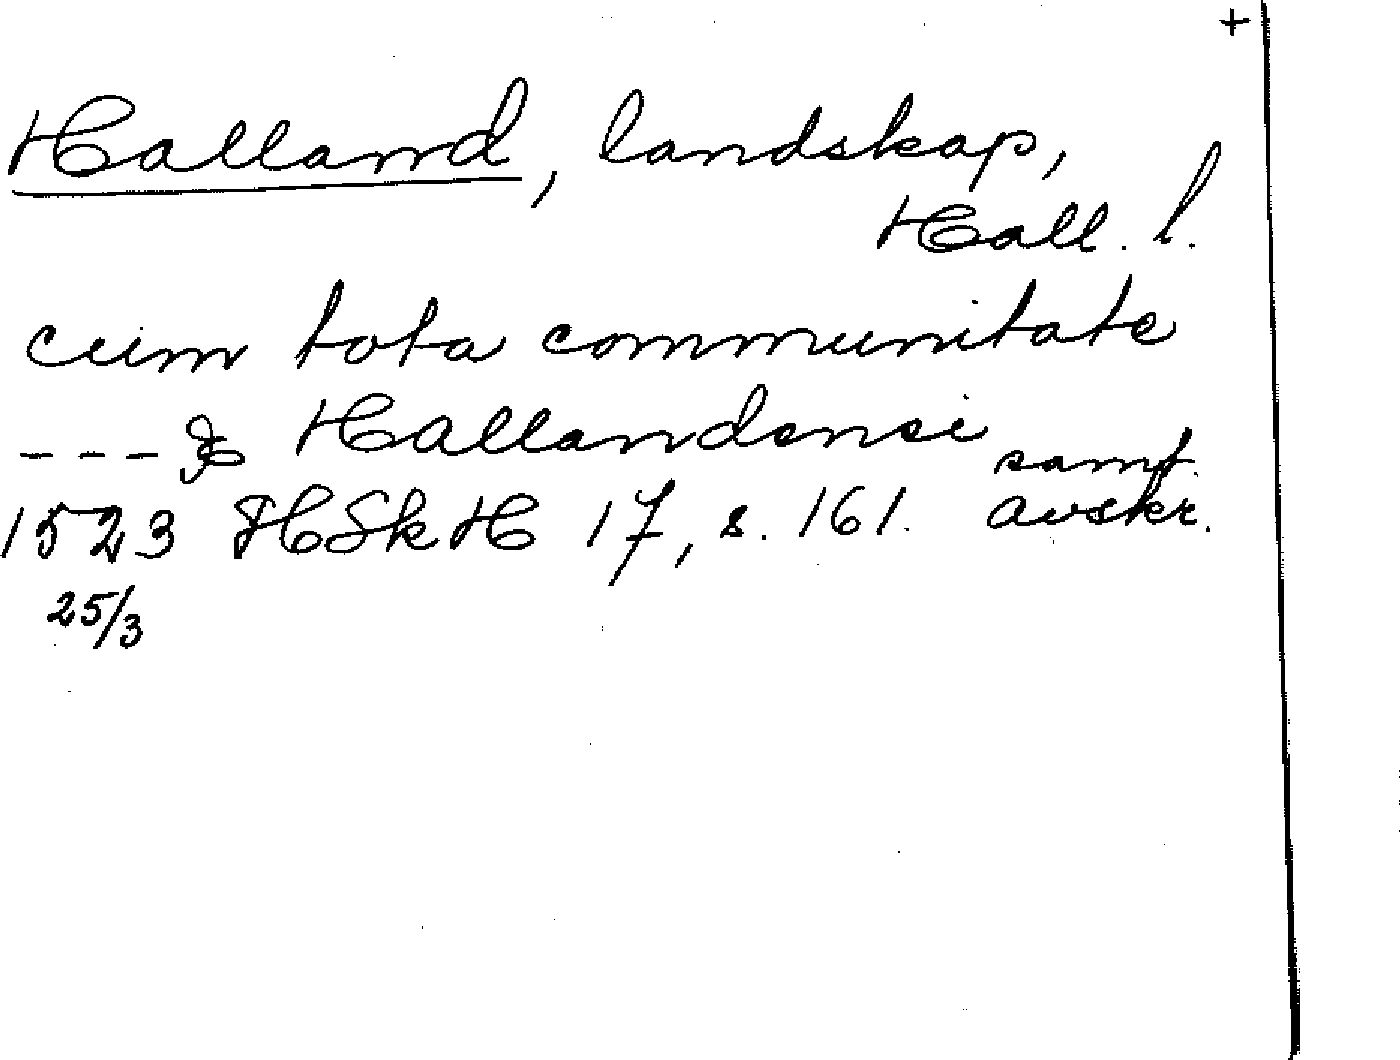 +
Halland, landskap,
Hall. l.
cum tota communitate
--- & Hallandensi
samt.
1523 HSkH 17, s. 161. avskr.
25/3